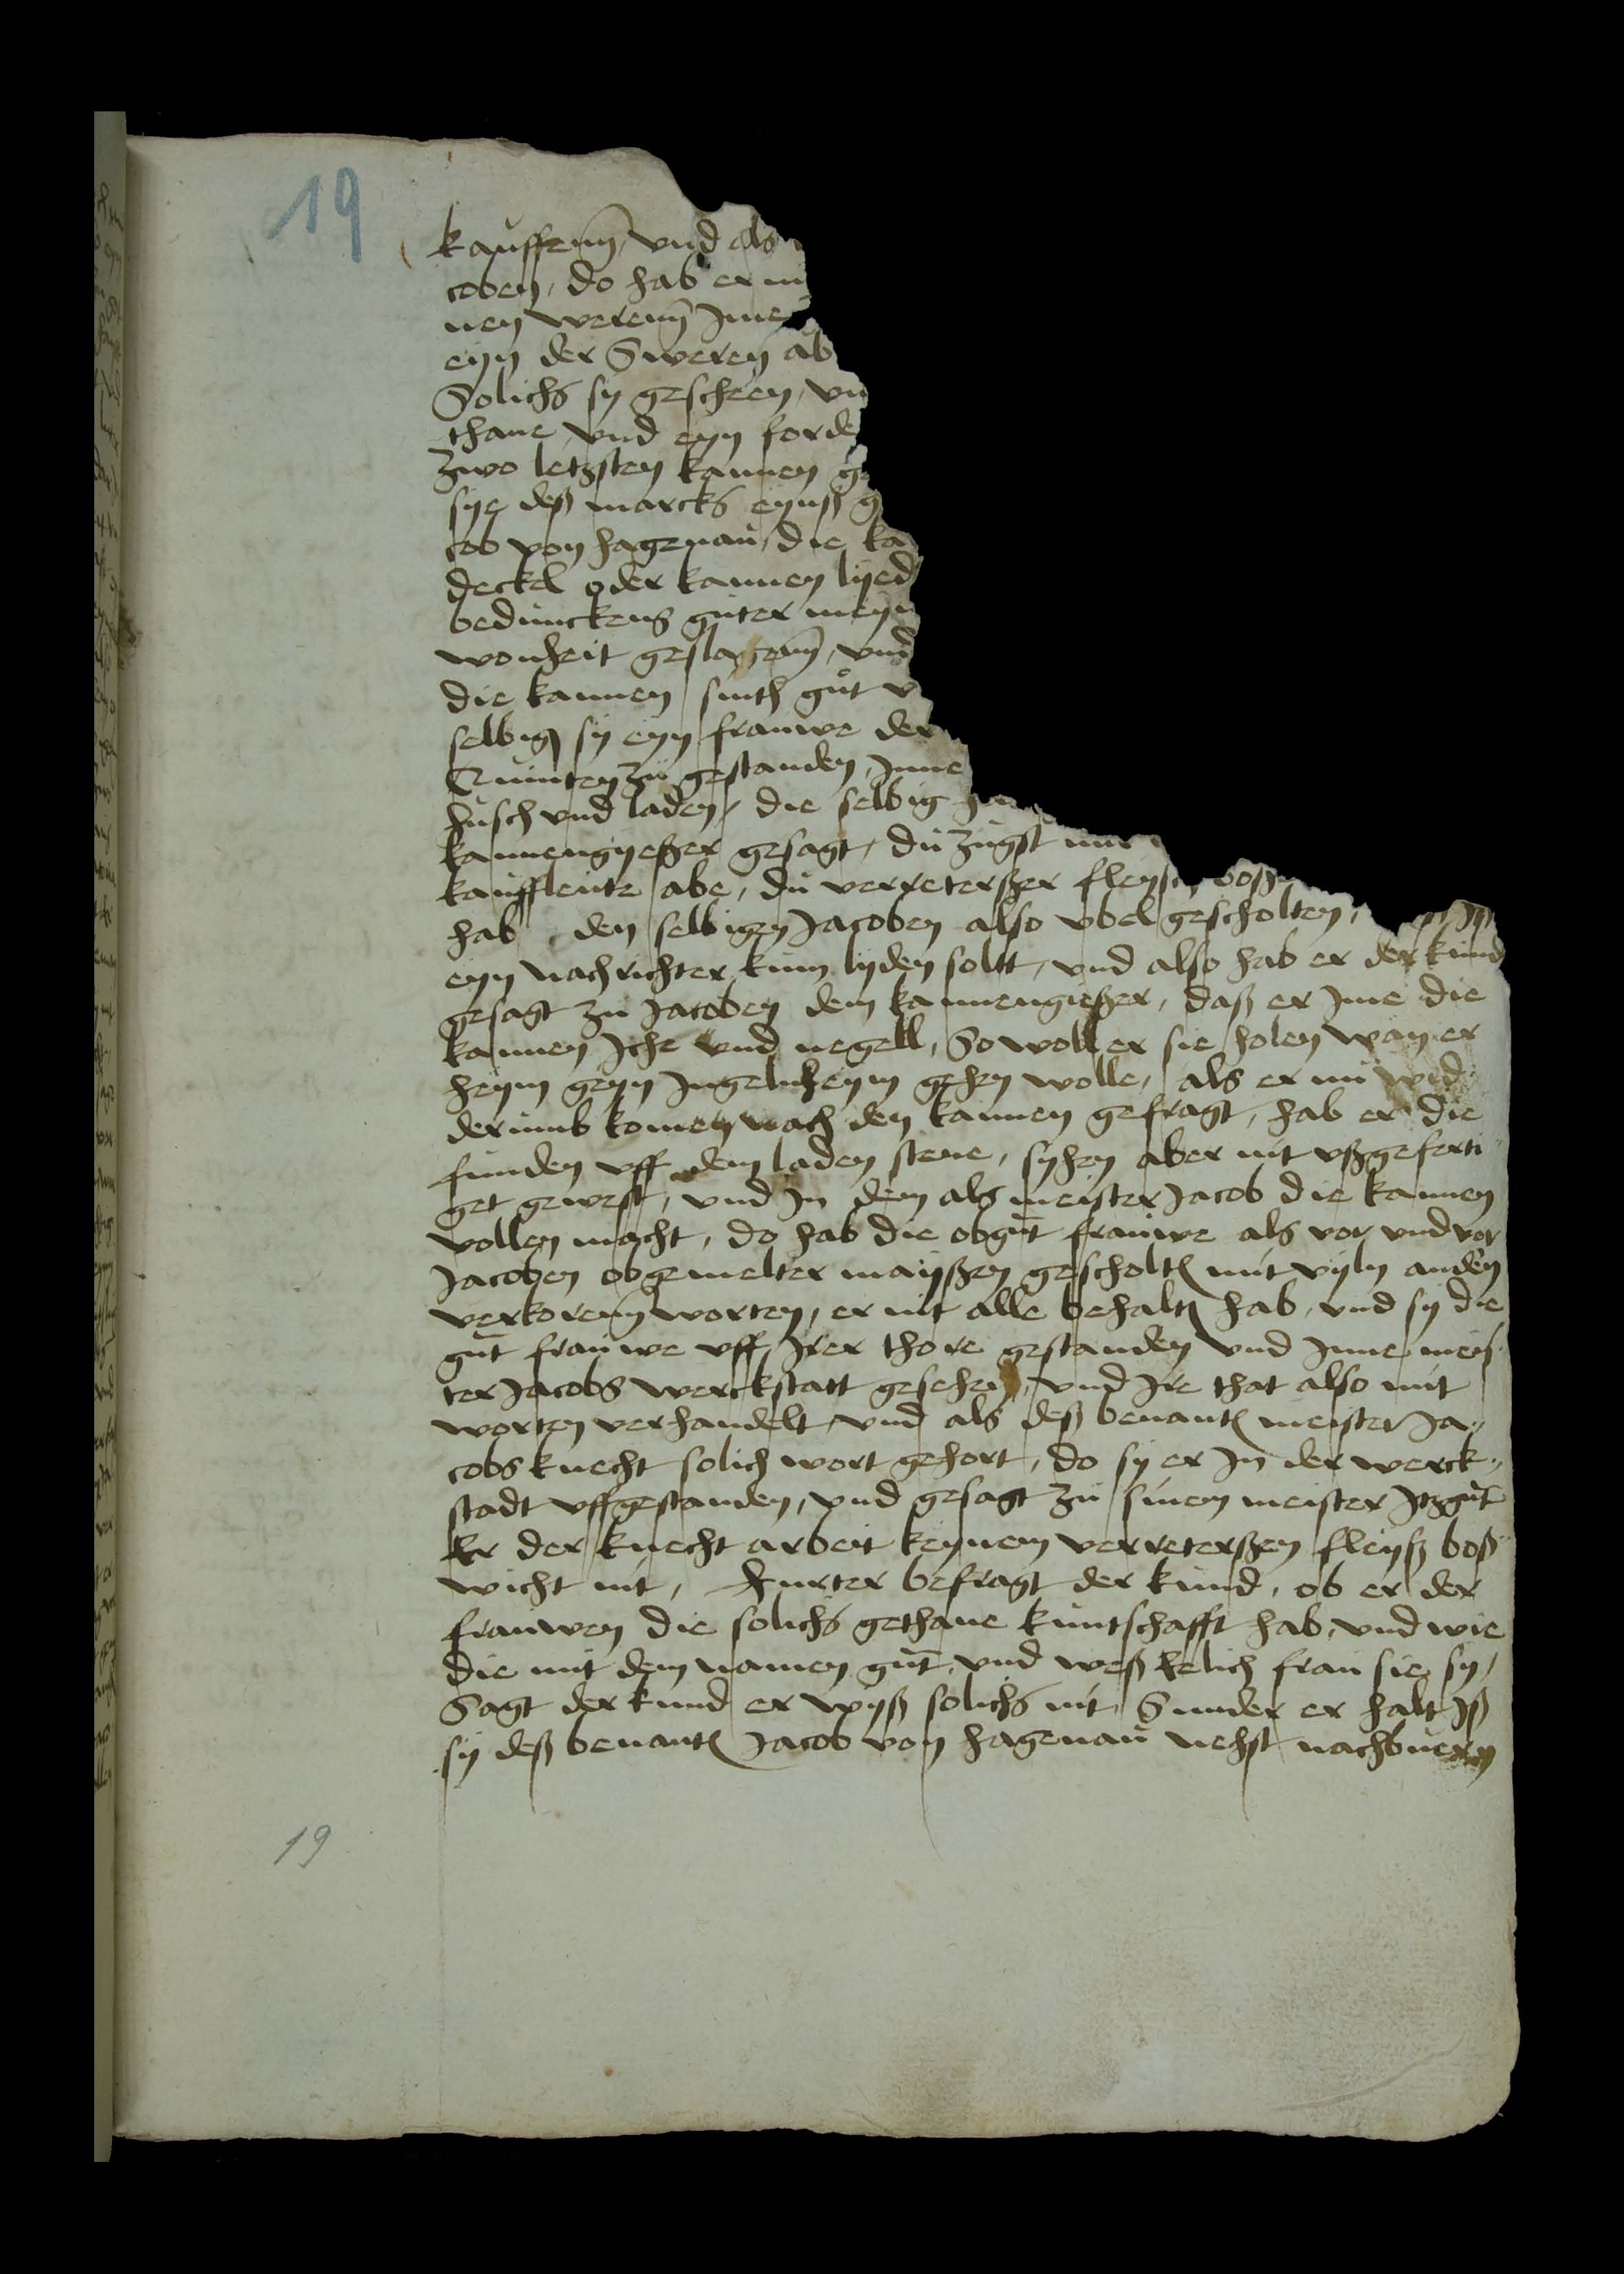 19
kauffenn, vnd als
coben, do hab er
nen werenn Ime
eyn der Sweren ab
Solichs sy gescheen, vn
thane vnd eyn forde
zwo letzsten kannen ge
sye deß marcks eynß g
cob von hagenau, die ka
deckel oder kannen lyed
bedunckens guter meyn
wonheit geslagenn, vnd
die kannen sinth gut v
selbig sy eyn frauwe der
zu gestanden, Inne
husch vnd laden, die selbig
kannengyeßer gesagt, du zugst mir
kauffleute abe, du verreterßer fleysch boß
hab den selbigen Jacoben also vbel gescholten,
eyn nachrichter kum lyden sollt, vnd also hab er der kund
gesagt zu Jacoben dem kannengießer, daß er Ime die
kannen Iche vnd negell, So woll er sie holen wan er
heym geyn Ingelnheym gehen wolle, als er nu wid
derumb komen nach den kannen gefragt, hab er die
funden vff dem laden stene, syhen aber nit vßgeferti
get gewest, vnd In dem als meister Jacob die kannen
vollen macht, do hab die obgnt frauwe als vor vnd vor
Jacoben obgemelter mayßen gescholten mit vyln andern
verkorenn worten, er nit alle behalten hab, vnd sy die
gnt frauwe vff Irer thore gestanden vnd Inne meis
ter Jacobs werckstatt gesehen, vnd Ire that also mit
worten verhandelt vnd als deß benanten meister Ja
cobs knecht solich wort gehort, do sy er In der werck
stadt vffgestanden, vnd gesagt zu sinem meister Itzgnt
Er der knecht arbeit keynem verreterßen fleyß boß
wicht nit, Furter befragt der kund, ob er der
frauwen die solichs gethane kuntschafft hab, vnd wie
die mit dem namen gnt, vnd weß Eelich frau sie sy,
Sagt der kund er wyß solichs nit, Sunder er halt Iß
sy deß benanten Jacob von hagenau nehst nachbuern
19